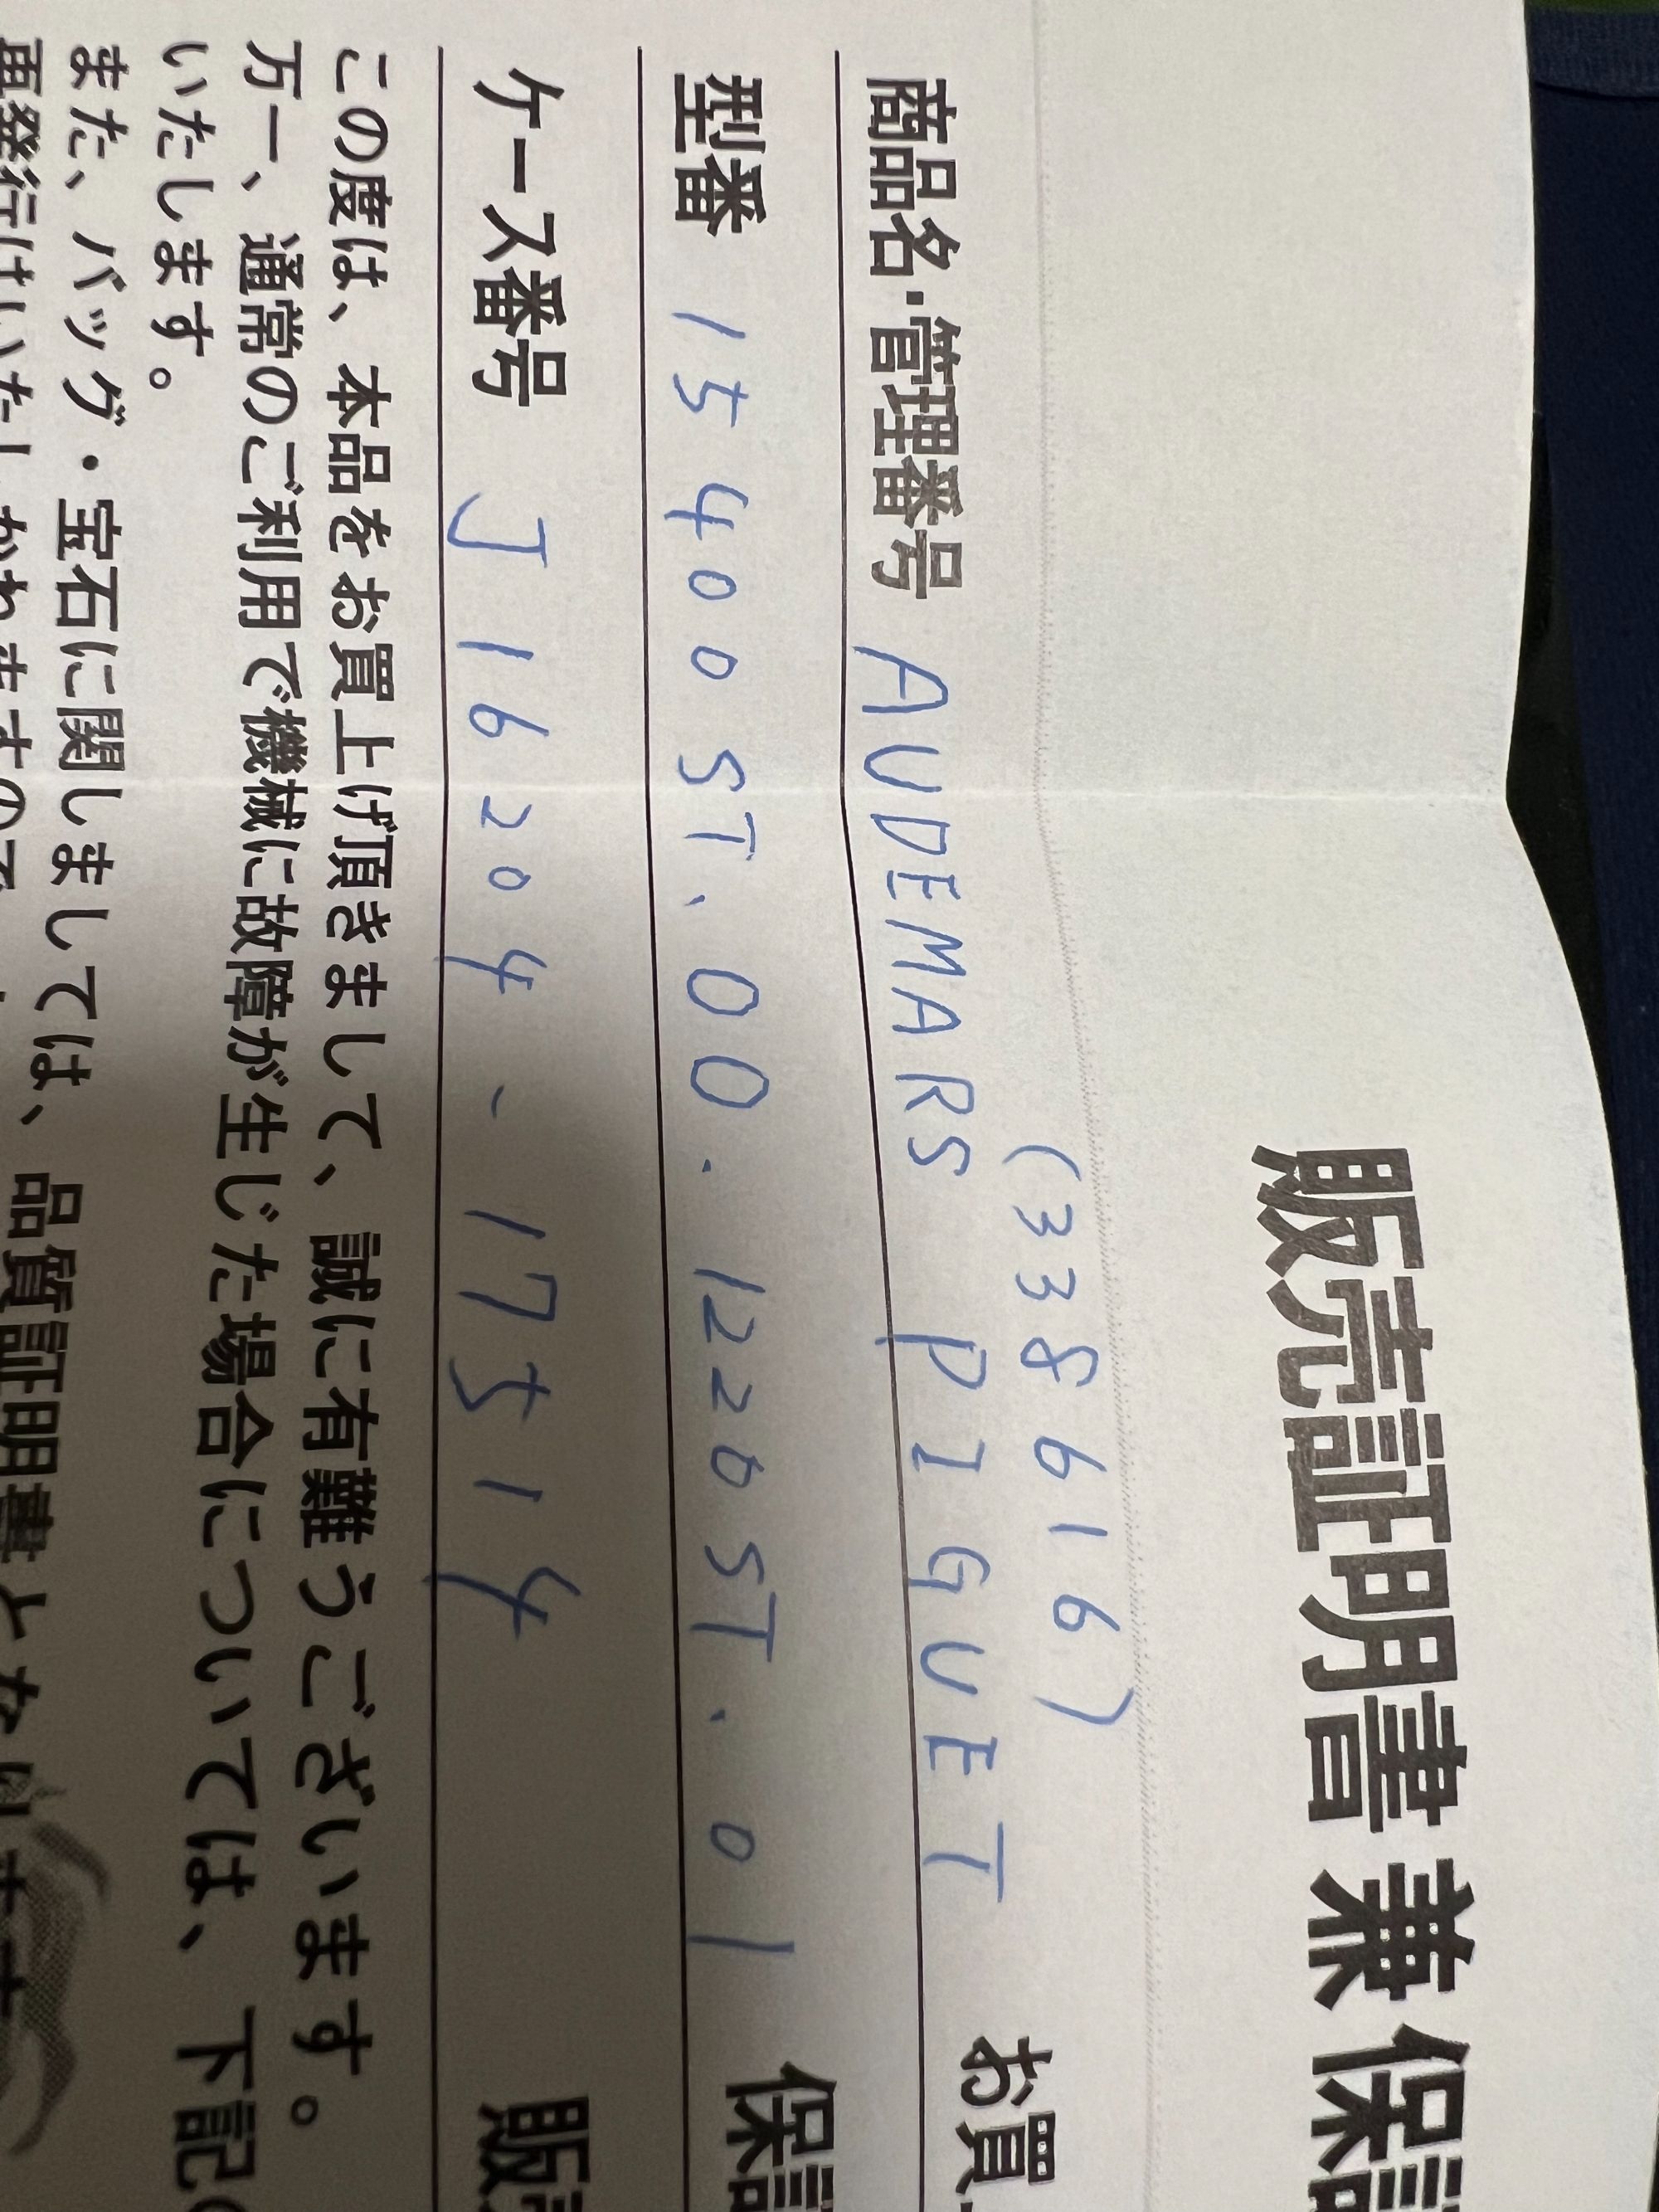 販売証明書 兼 保証
(338616)
商品名・管理番号 AUDEMARS PIGUET お買
型番 15400ST.00.1220ST.01 保証
ケース番号 J16204-17514 販
この度は、本品をお買上げ頂きまして、誠に有難うございます。
万一、通常のご利用で機械に故障が生じた場合については、下記の
いたします。
また、バッグ・宝石に関しましては、品質証明書となります
再発行はいたしかねますので